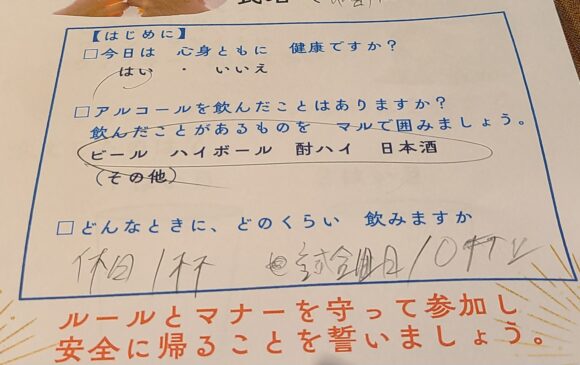 【はじめに】
□今日は 心身ともに 健康ですか?
はい ・ いいえ
□アルコールを飲んだことはありますか?
飲んだことがあるものを マルで囲みましょう。
ビール ハイボール 酎ハイ 日本酒
(その他)
□どんなときに、どのくらい 飲みますか
休日 1杯 試合日 10杯以上
ルールとマナーを守って参加し
安全に帰ることを誓いましょう。